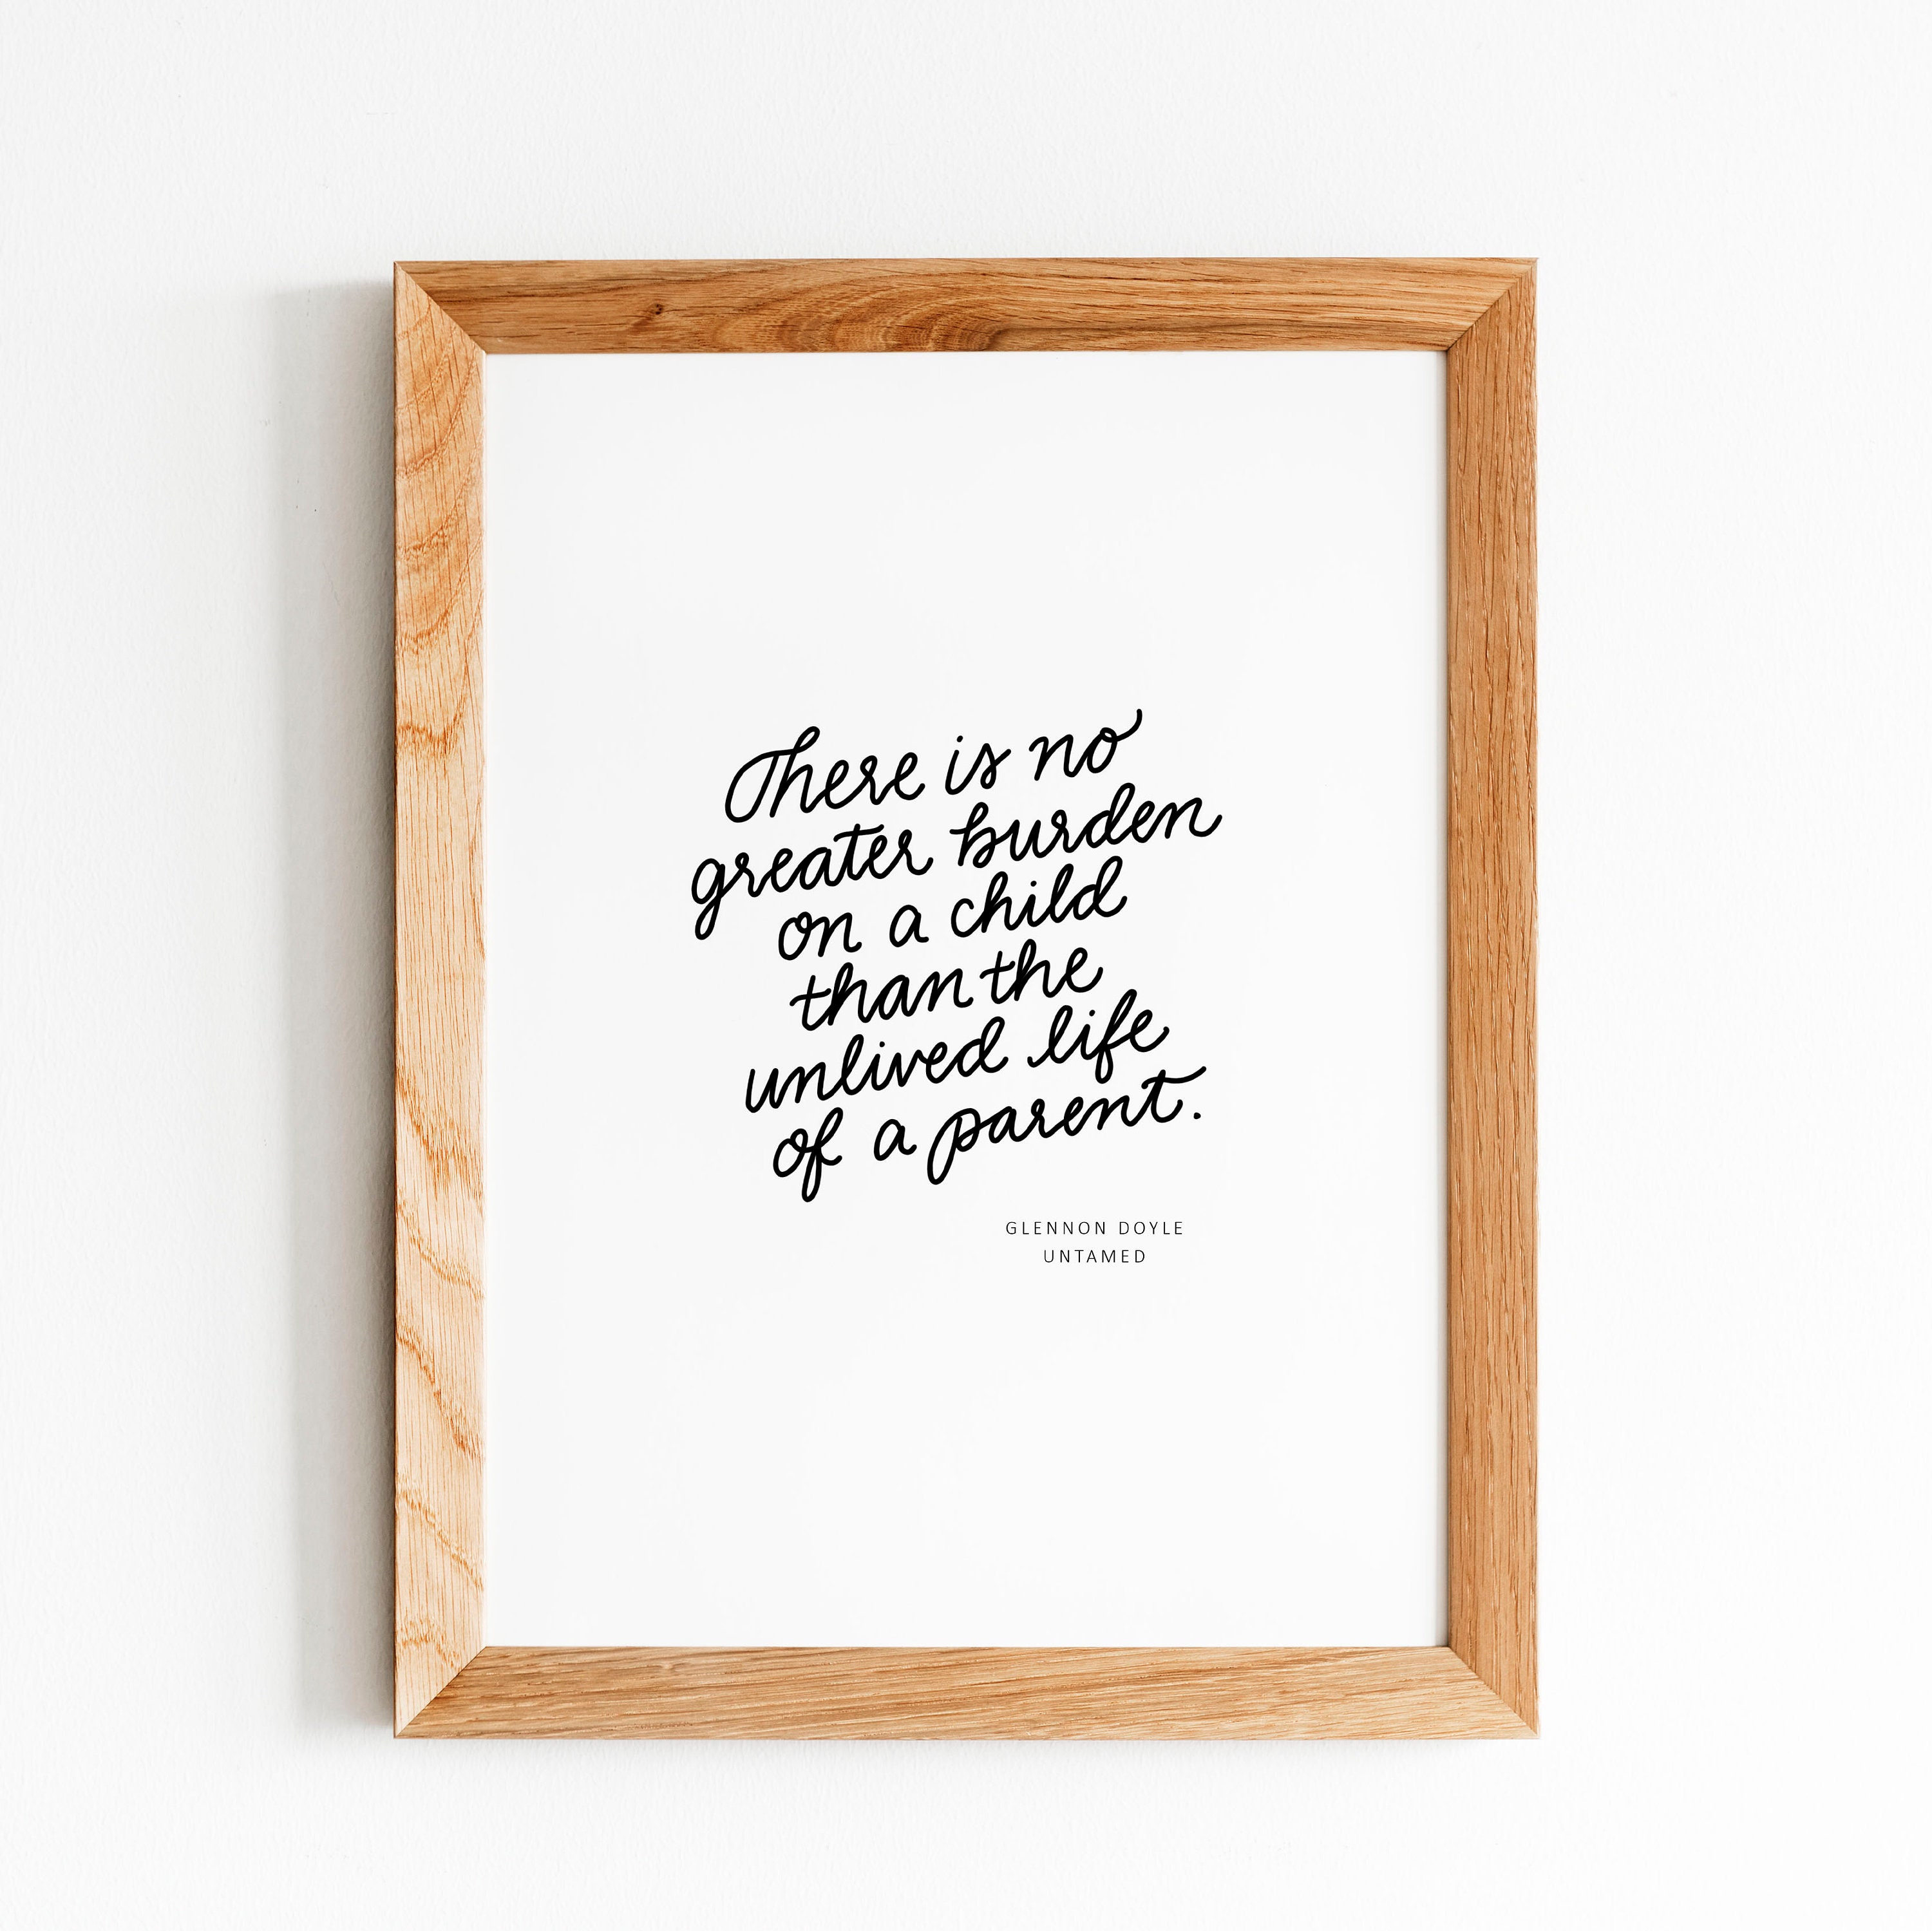 There is no
greater burden
on a child
than the
unlived life
of a parent.
GLENNON DOYLE
UNTAMED